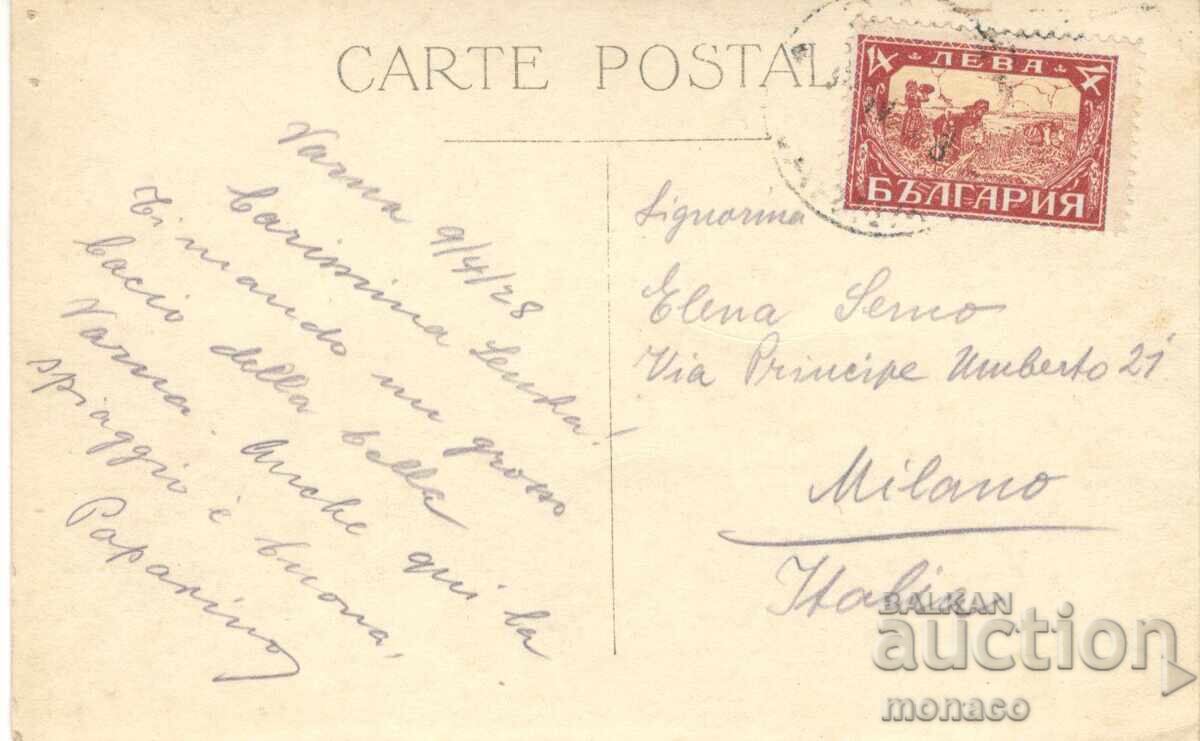 CARTE POSTAL
4 ЛЕВА 4
БЪЛГАРИЯ
Varna 9/4/28
Carissima
Ti mando un grosso
bacio della bella
Varna. Anche qui la
spiaggia è buona,
Paparino
Signorina
Elena Serno
Via Principe Umberto 21
Milano
Italia
BALKAN
auction
monaco